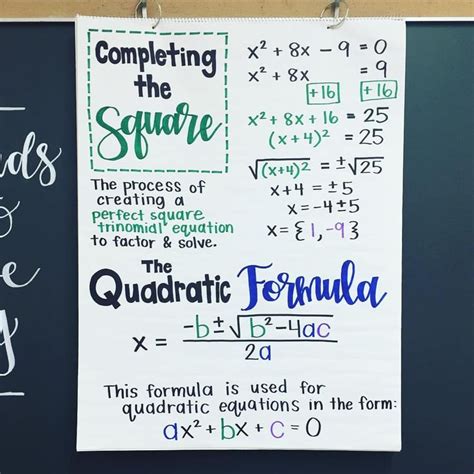 Completing
the
Square
The process of
creating a
perfect square
trinomial equation
to factor & solve.
x² + 8x - 9 = 0
x² + 8x = 9
+16 +16
x² + 8x + 16 = 25
(x+4)² = 25
√(x+4)² = ±√25
x+4 = ±5
x = -4±5
x = {1,-9}
The
Quadratic Formula
x = -b±√b²-4ac
2a
This formula is used for
quadratic equations in the form:
ax² + bx + c = 0